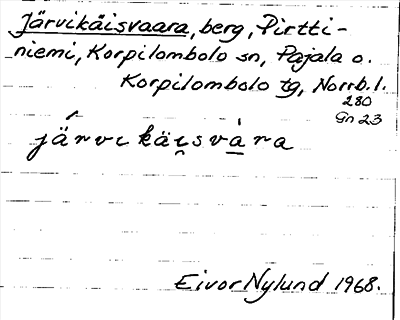 Järvikäisvaara, berg, Pirtti-
niemi, Korpilombolo sn, Pajala o.
Korpilombolo tg, Norrb. l.
280
Gn 23
järvikäi̯svàra
Eivor Nylund 1968.